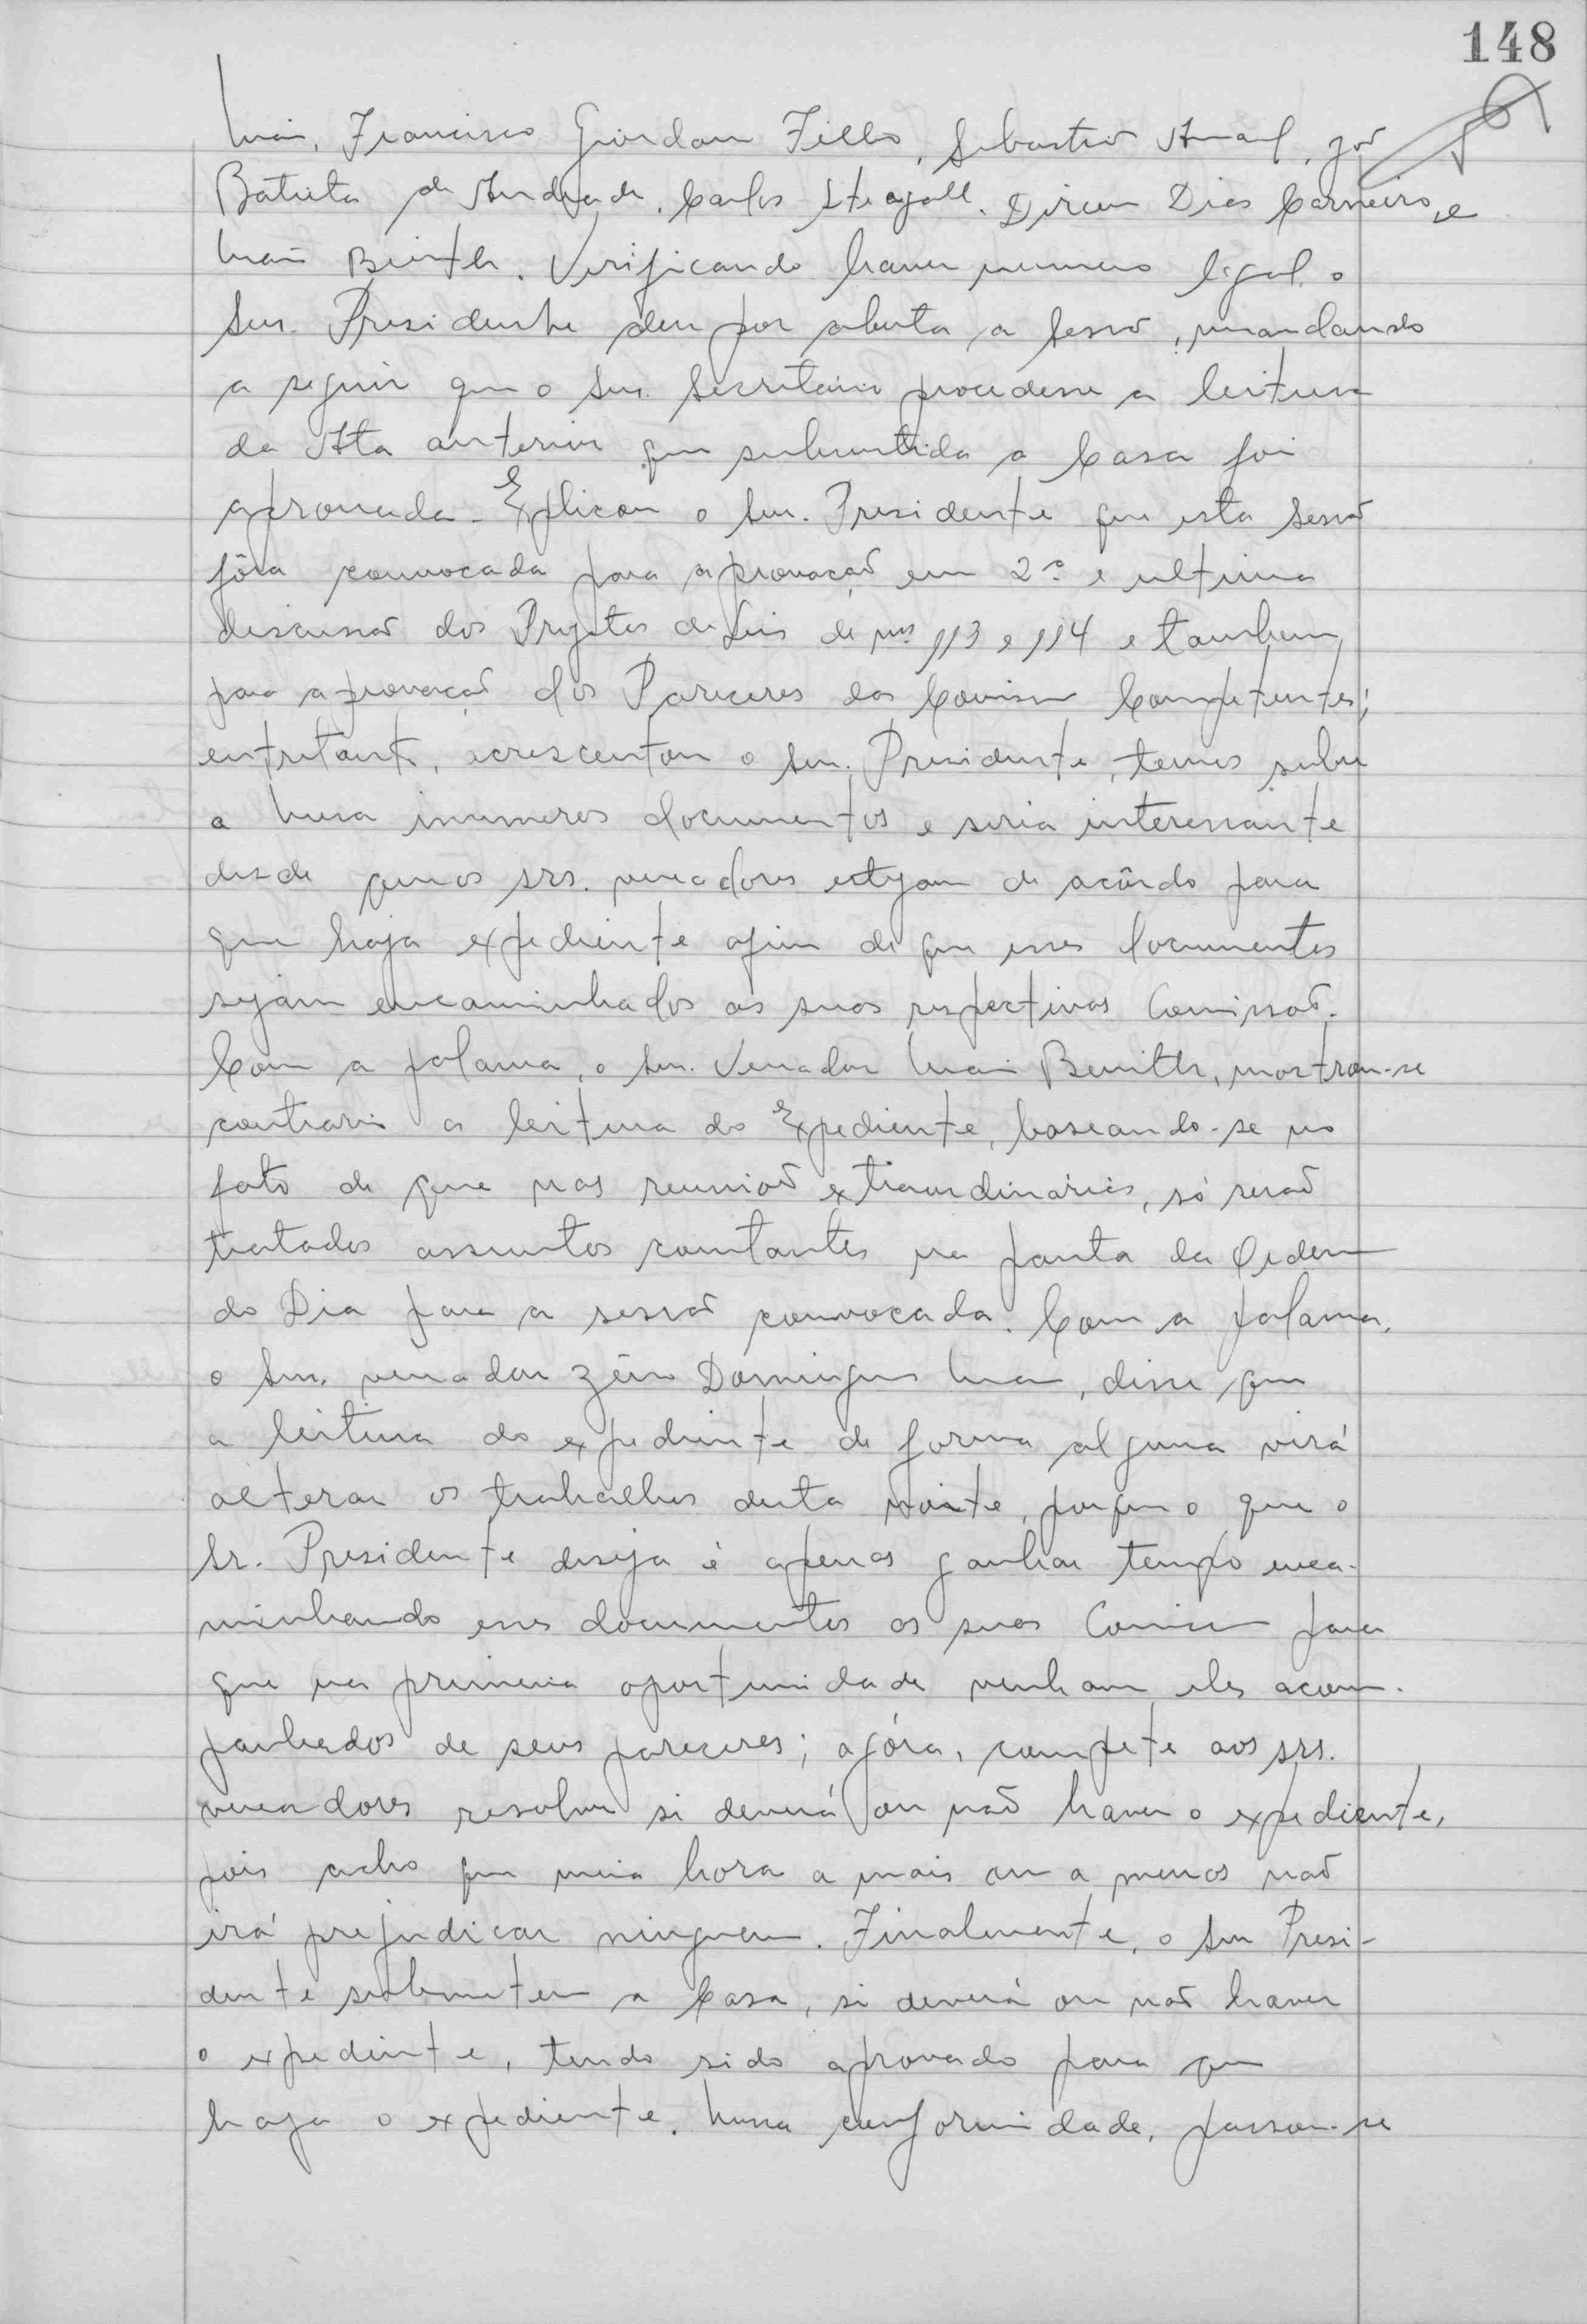 148
Maia, Francisco Giordano Filho, Sebastião Amaral, José
Batista de Andrade, Carlos Stegall, Dirceu Dias Carneiro, e
Bueith. Verificando haver numero legal, o
Snr. Presidente deu por aberta a Sessão, mandando
a seguir que o Snr. Secretário procedesse a leitura
da Ata anterior que submetida a Casa foi
aprovada. Explicou o Snr. Presidente que esta sessão
fôra convocada para aprovação em 2ª e ultima
discussão dos Projetos de Leis de nºs 113 e 114 e tambem,
para aprovação dos Pareceres das Comissões Competentes;
entretanto, acrescentou o Snr. Presidente, temos sobre
a mesa inumeros documentos e seria interessante
desde que os srs. vereadores estejam de acôrdo para
que haja expediente afim de que esses documentos
sejam encaminhados as suas respectivas Comissões.
Com a palavra, o Snr. Vereador Benith, mostrou-se
contrario a leitura do Expediente, baseando-se no
fato de que nas reuniões extraordinárias, só serão
tratados assuntos constantes na pauta da Ordem
do Dia para a sessão convocada. Com a palavra,
o Snr. vereador Zéro Domingues Maia, disse que
a leitura do expediente de forma alguma virá
alterar os trabalhos desta noite, porque o que o
Sr. Presidente deseja é apenas ganhar tempo enca-
minhando esses documentos as suas Comissões para
que na primeira oportunidade venham eles acom-
panhados de seus pareceres; agóra, compete aos srs.
vereadores resolver si deverá ou não haver o expediente,
pois acho que meia hora a mais ou a menos não
irá prejudicar ninguem. Finalmente, o Snr Presi-
dente submeteu a Casa, si deverá ou não haver
o expediente, tendo sido aprovado para que
haja o expediente. Nessa conformidade, passou-se